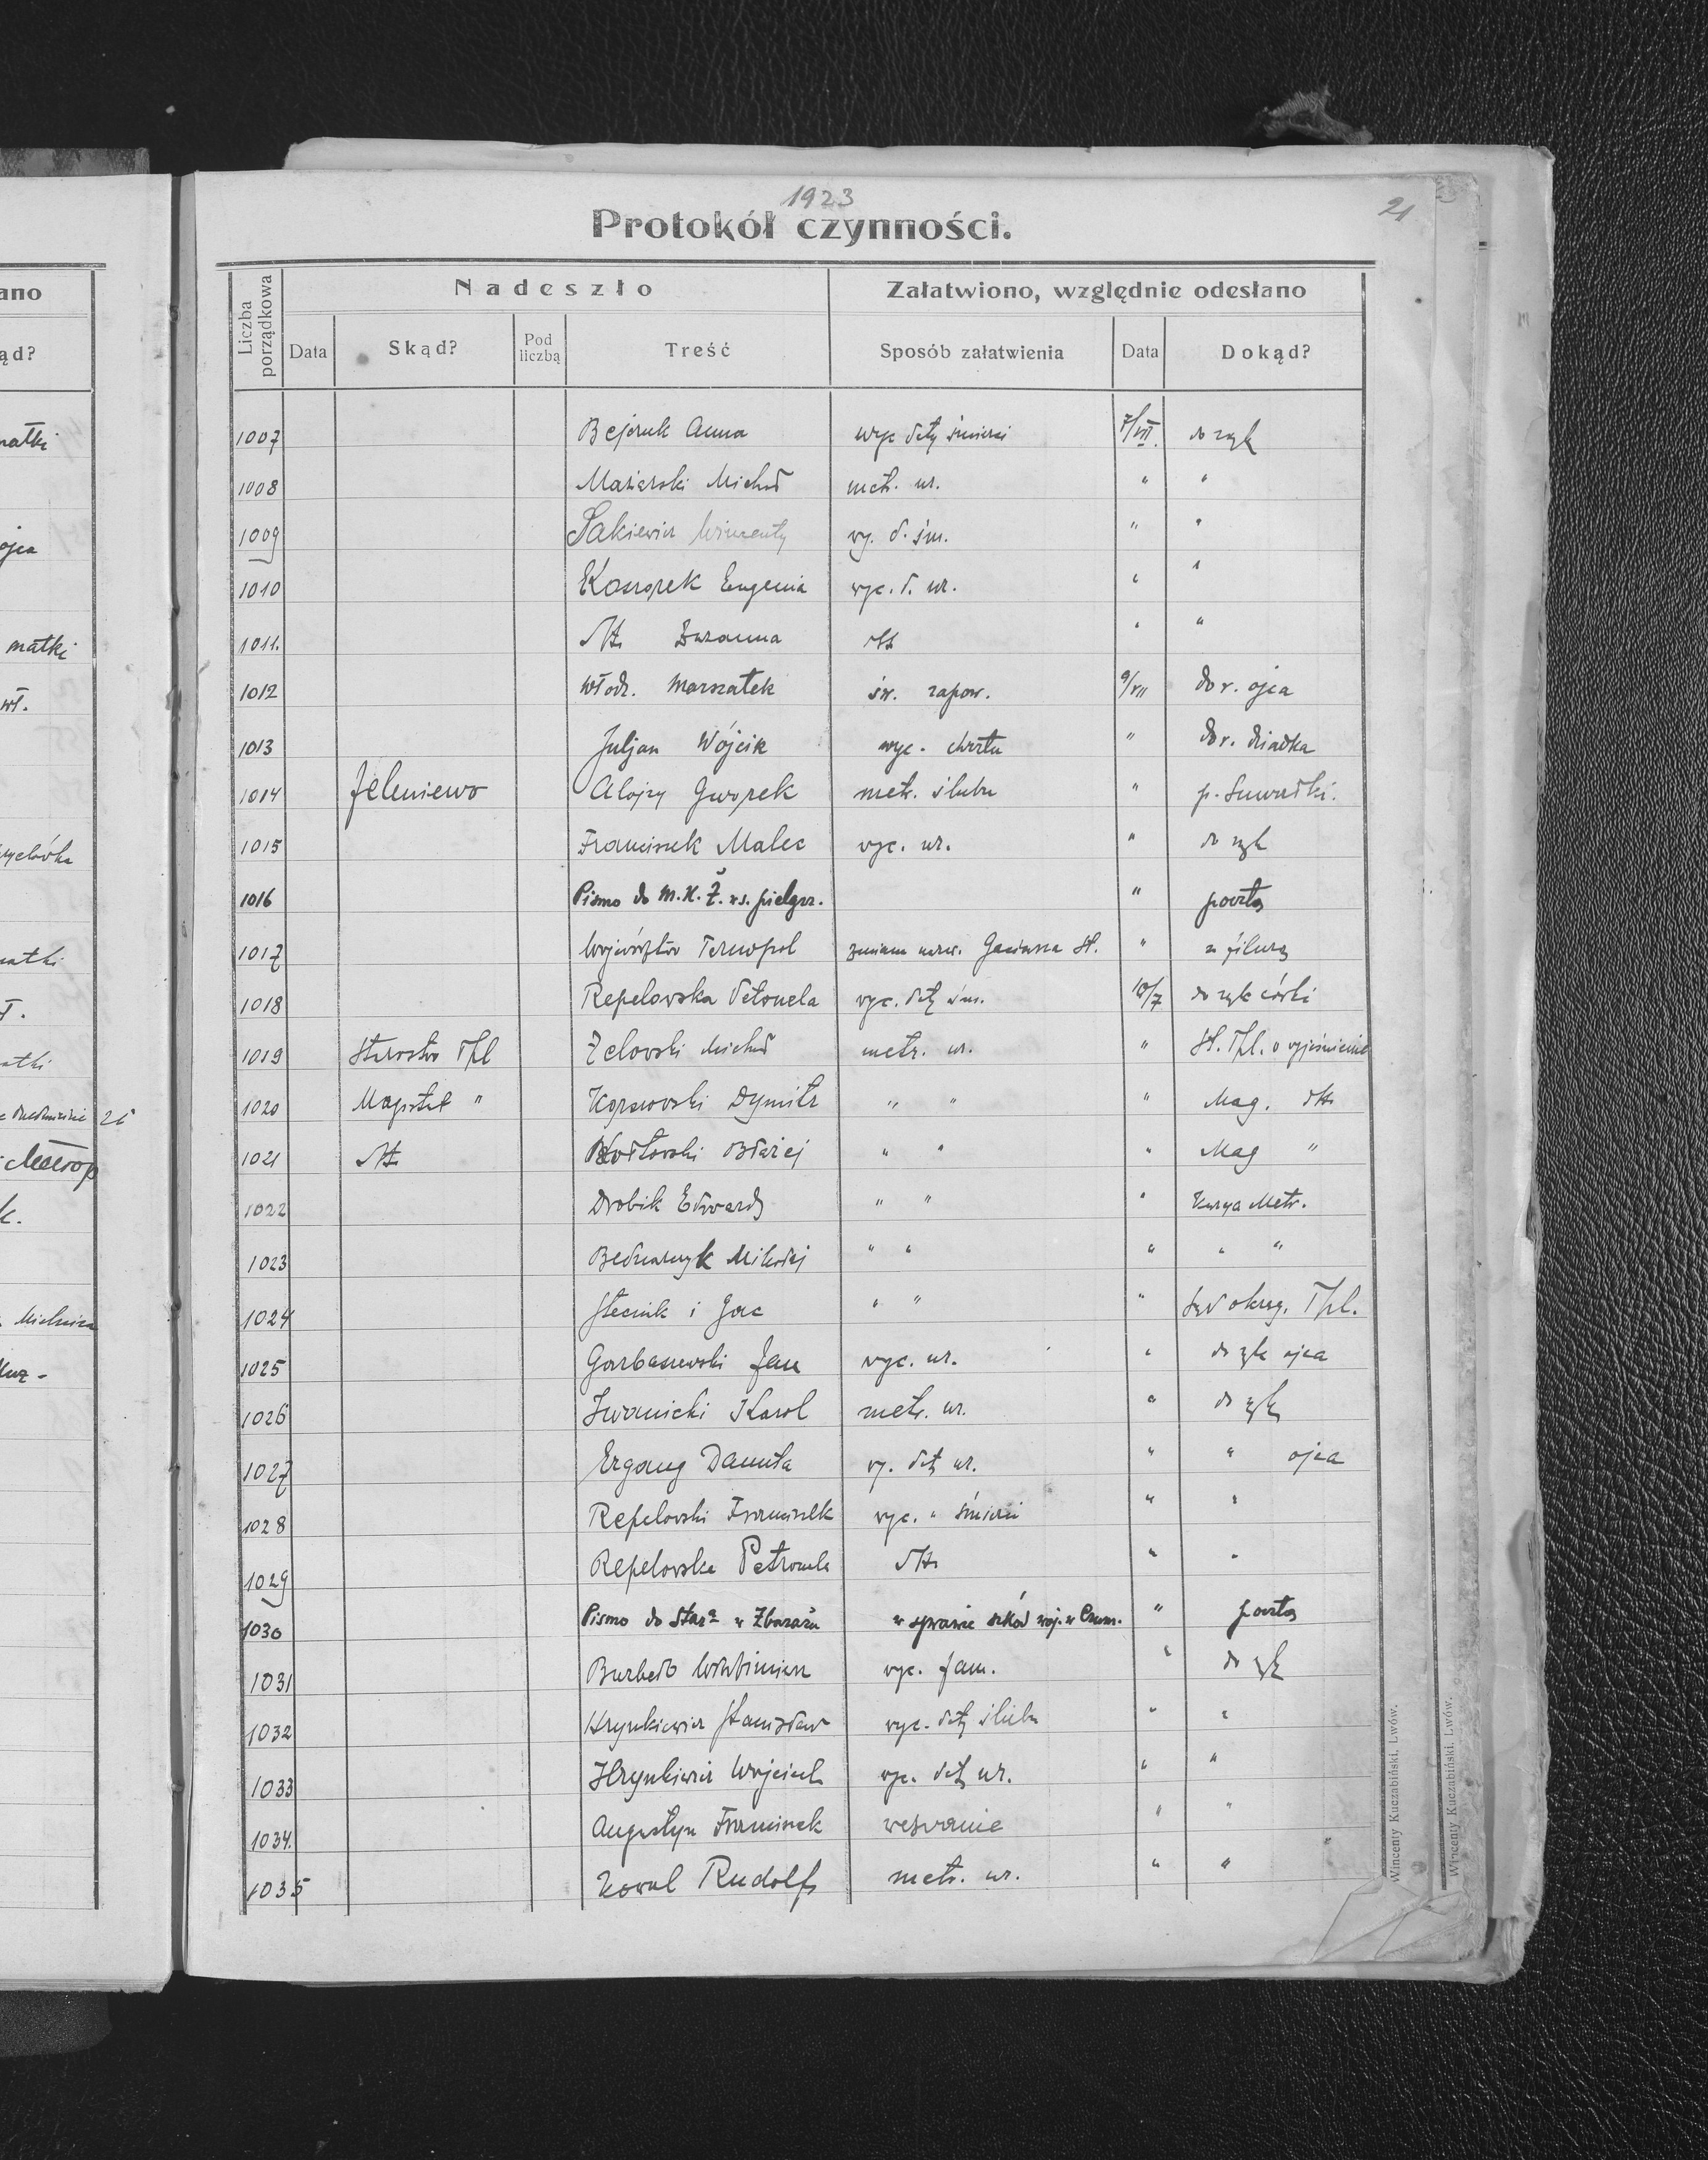 1923
21
Protokół czynności.
Liczba porządkowa
Nadeszło
Załatwiono, względnie odesłano
Data
Skąd?
Pod liczbą
Treść
Sposób załatwienia
Data
Dokąd?
ano
ąd?
1007 Bejeruk Anna wyc daty śmierci 7/VII. do rąk
1008 Mazierski Michał metr. ur. " "
1009 Sakiewicz Wincenty wy. d. śm. " "
1010 Konopek Eugenia wyc. d. ur. " "
1011. dtto Zuzanna dtto " "
1012 Włodz. Marszałek św. zapow. 9/VII do r. ojca
1013 Juljan Wójcik wyc. chrztu " do r. dziadka
1014 Jeleniewo Alojzy Gworek metr. ślubu " p. Suwałki.
1015 Franciszek Malec wyc. ur. " do rąk
1016 Pismo do M.K.Ż. w s. pielgrz. " pocztą
1017 Województwo Tarnopol zmiana nazw. St. "
1018 Repelowska Petronela wyc. daty śm. 10/7 do rąk córki
1019 Starostwo Tpl Zelowski Michał metr. ur. " St. Tpl. o wyjaśnienie
1020 Magistrat " Dymitr " " " Mag. dtto
1021 dtto Kozłowski Błażej " " " Mag "
1022 Drobik Edward " " " Kurya Metr.
1023 Bednarczyk Mikołaj " " " " "
1024 Stecink i Gac " " " Sąd okręg. Tpl.
1025 Garbaszewski Jan wyc. ur. " do rąk ojca
1026 Iwanicki Karol metr. ur. " do rąk
1027 Ergang Danuta wy. daty ur. " " ojca
1028 Repelowski Franciszek wyc. " śmierci " "
1029 Repelowska Petronela dtto " "
1030 Pismo do Star. w Zbarażu w sprawie szkód woj. w Czum. " pocztą
1031 Włodzimierz wyc. fam. " do rąk
1032 Hrynkiewicz Stanisław wyc. daty ślubu " "
1033 Hrynkiewicz Wojciech wyc. daty ur. " "
1034. Augustyn Franciszek wezwanie " "
1035 Kowal Rudolf metr. ur. " "
matki
ojca
matki
wł.
Wincenty Kuczabiński, Lwów.
Wincenty Kuczabiński, Lwów.